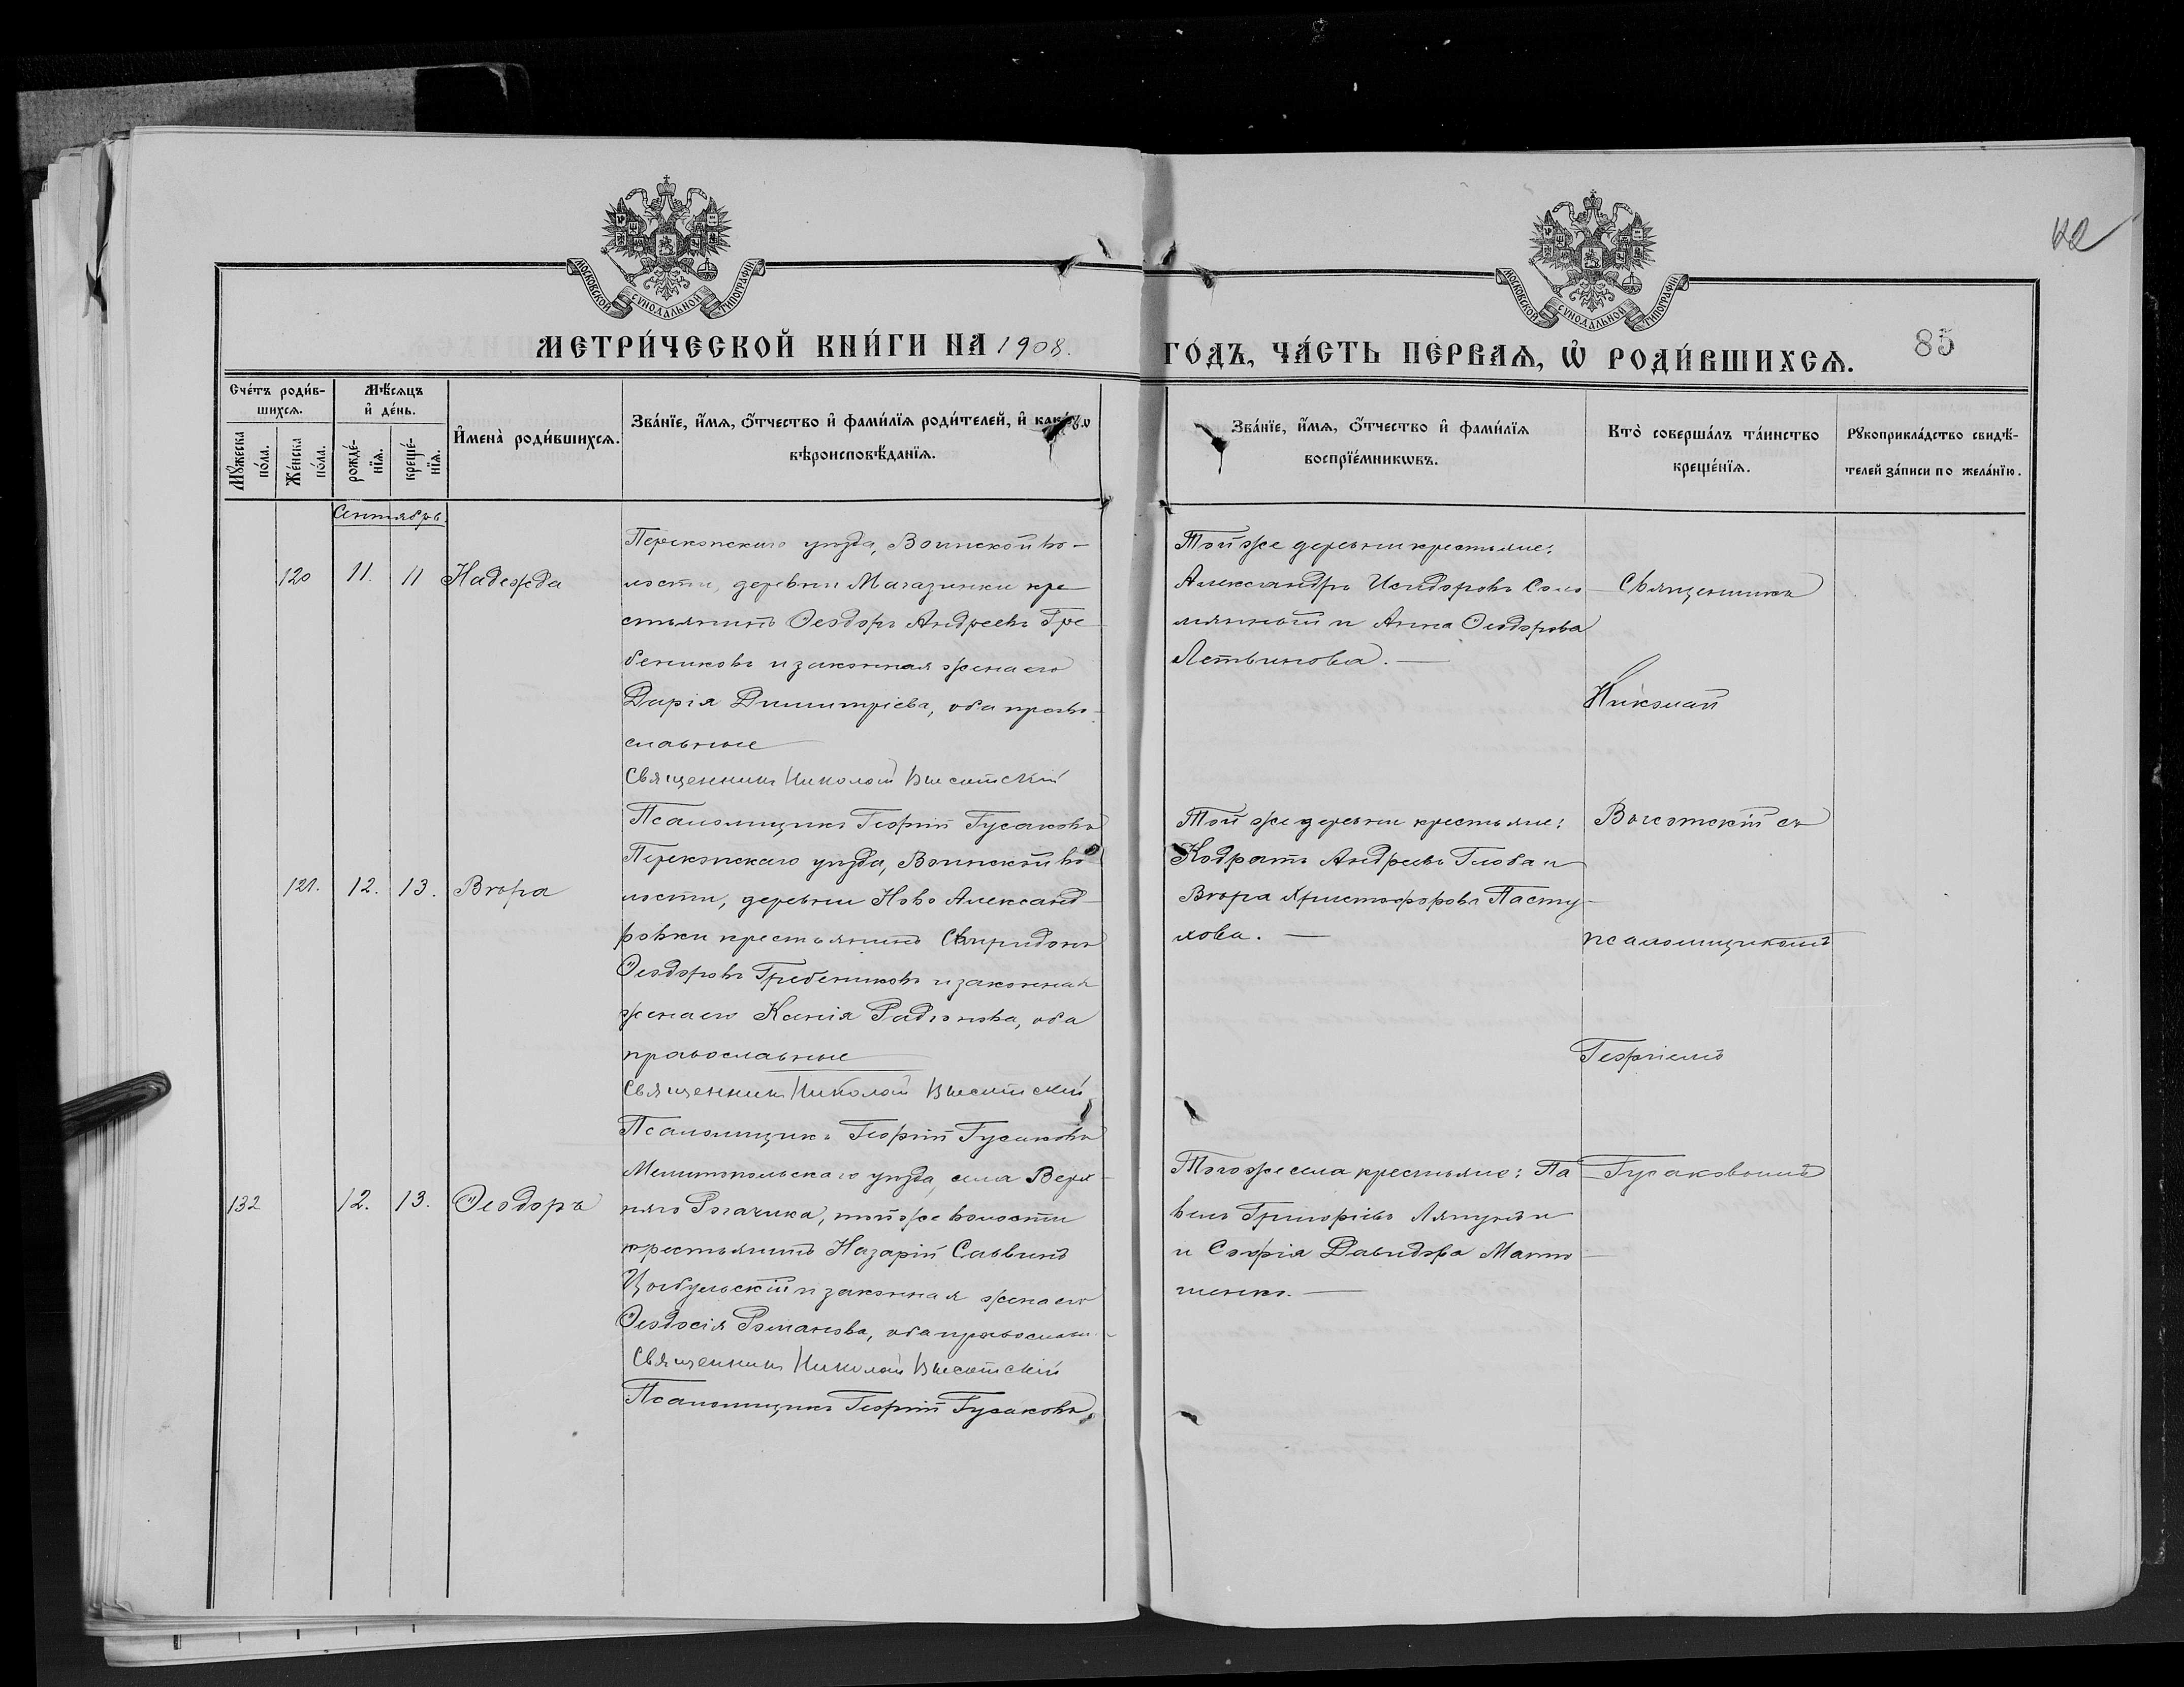 МОСКОВСКОЙ СѴНОДАЛЬНОЙ ТИПОГРАФІИ
МОСКОВСКОЙ СѴНОДАЛЬНОЙ ТИПОГРАФІИ
МЕТРИ́ЧЕСКОЙ КНИ́ГИ НА 1908.
ГО́ДЪ, ЧА́СТЬ ПЕ́РВАѦ, Ѡ҆ РОДИ́ВШИХСѦ.
85
Сче́тъ роди́в-
шихсѧ.
Мꙋжеска по́ла.
Же́нска по́ла.
Мѣ́сѧцъ
и҆ де́нь.
рожде́-
нїѧ.
креще́-
нїѧ.
И҆мена̀ роди́вшихсѧ.
Зва́нїе, и҆́мѧ, ѻ҆́тчество и҆ фами́лїѧ роди́телей, и҆
вѣроисповѣ́данїѧ.
Зва́нїе, и҆́мѧ, ѻ҆́тчество и҆ фами́лїѧ
воспрїе́мникѡвъ.
Кто̀ соверша́лъ та́инство
креще́нїѧ.
Рꙋкоприкла́дство свидѣ́-
телей за́писи по жела́нїю.
Сентябрь.
120
11.
11
Надежда
Перекопскаго уѣзда, Воинской во-
лости, деревни Магазинки кре-
стьянинъ Ѳеодоръ Андреевъ Гре
бениковъ и законная жена его
Дарія Димитріева, оба право-
славные
Священникъ Николай Высотскій
Псаломщикъ Георгій Гусаковъ
Той же деревни крестьяне:
Александръ Исидоровъ Соло
мянный и Анна Ѳеодорова
Литвинова.
Священникъ
Николай
121.
12.
13.
Вѣра
Перекопскаго уѣзда, Воинской во
лости, деревни Ново Александ-
ровки крестьянинъ Спиридонъ
Ѳеодоровъ Гребениковъ и законная
жена его Ксенія Радіонова, оба
православные
Священникъ Николай Высотскій
Псаломщикъ Георгій Гусаковъ
Той же деревни крестьяне:
Кодратъ Андреевъ Глоба и
Вѣра Христофорова Пасту-
хова.
Высотскій съ
псаломщикомъ
Георгіемъ
132
12.
13.
Ѳеодоръ
Мелитопольскаго уѣзда, села Верх-
няго Рогачика, той же волости
крестьянинъ Назарій Саввинъ
Цыбульскій и законная жена его
Ѳеодосія Романова, оба православн.
Священникъ Николай Высотскій
Псаломщикъ Георгій Гусаковъ
Того же села крестьяне: Па
велъ Григорьевъ и
и Софія Давидова Матю
шенко.
Гусаковымъ